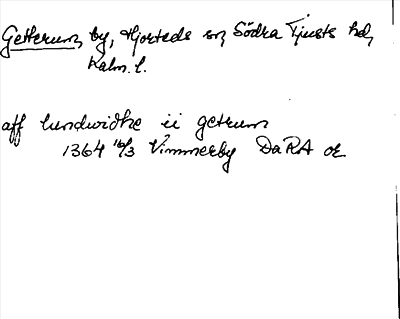 Getterum by, Hjorteds sn, Södra Tjusts hd,
Kalm. l.
aff lundwidhe ii getrum
1364 16/3 Vimmerby DaRA or